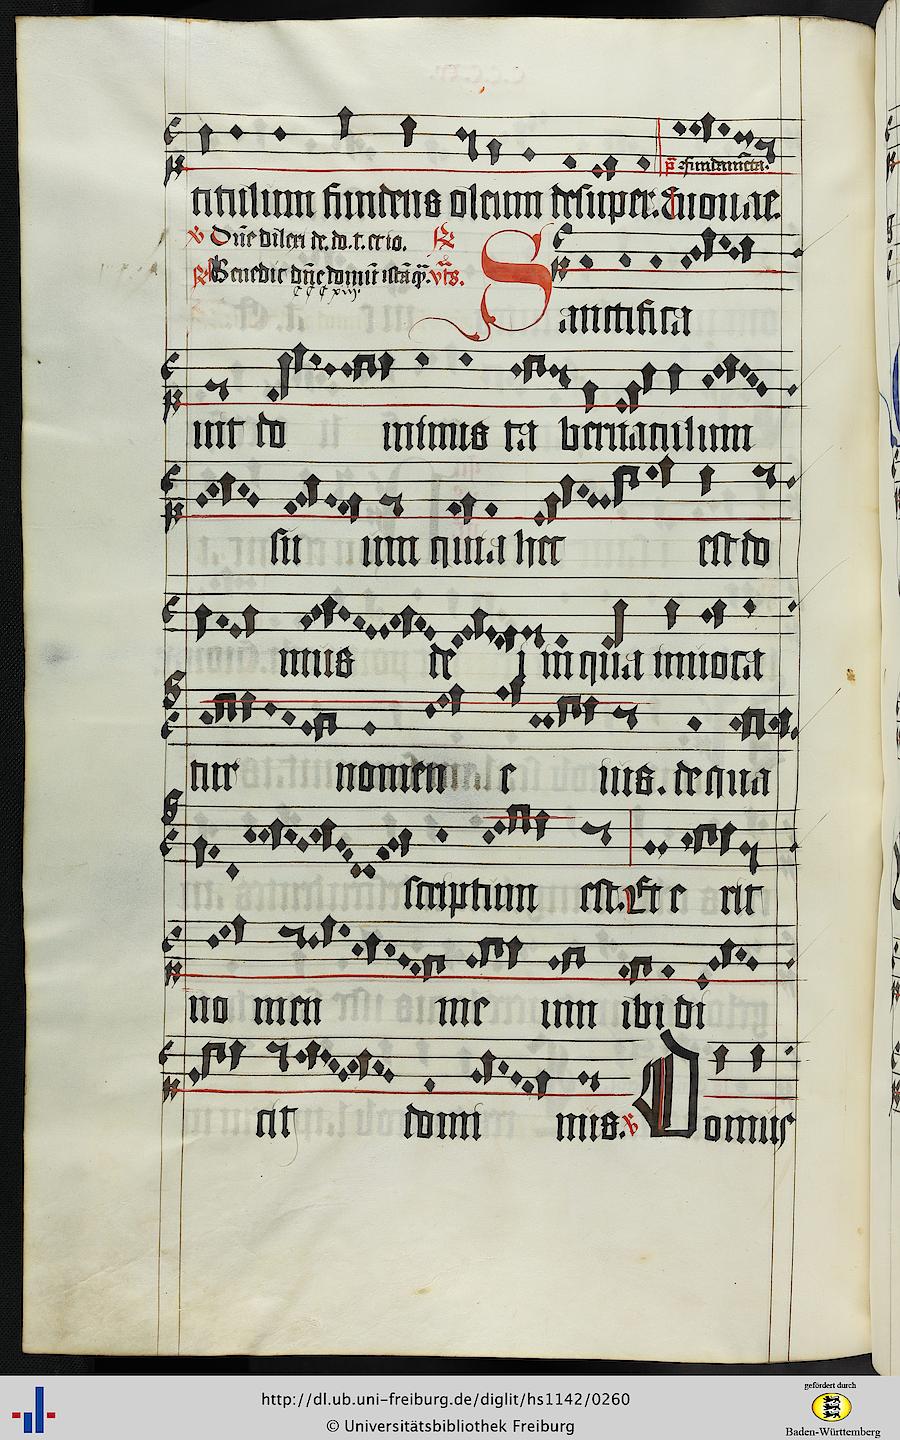 p̄ Fundamēta.
titulum fundens oleum desuper. Euouae.
℣ Dn̄e dilexi de. do. t. et lo. ℟
℟ Benedic dn̄e domū istā qͣ. vt̄s. S
ccc xiij.
anctifica
uit do minus ta bernaculum
su um quia hec est do
mus de j in qua inuoca
tur nomen e ius. de qua
scriptum est. Et e rit
no men me um ibi di
cit domi nus. ℣ Domus
http://dl.ub.uni-freiburg.de/diglit/hs1142/0260
© Universitätsbibliothek Freiburg
gefördert durch
Baden-Württemberg